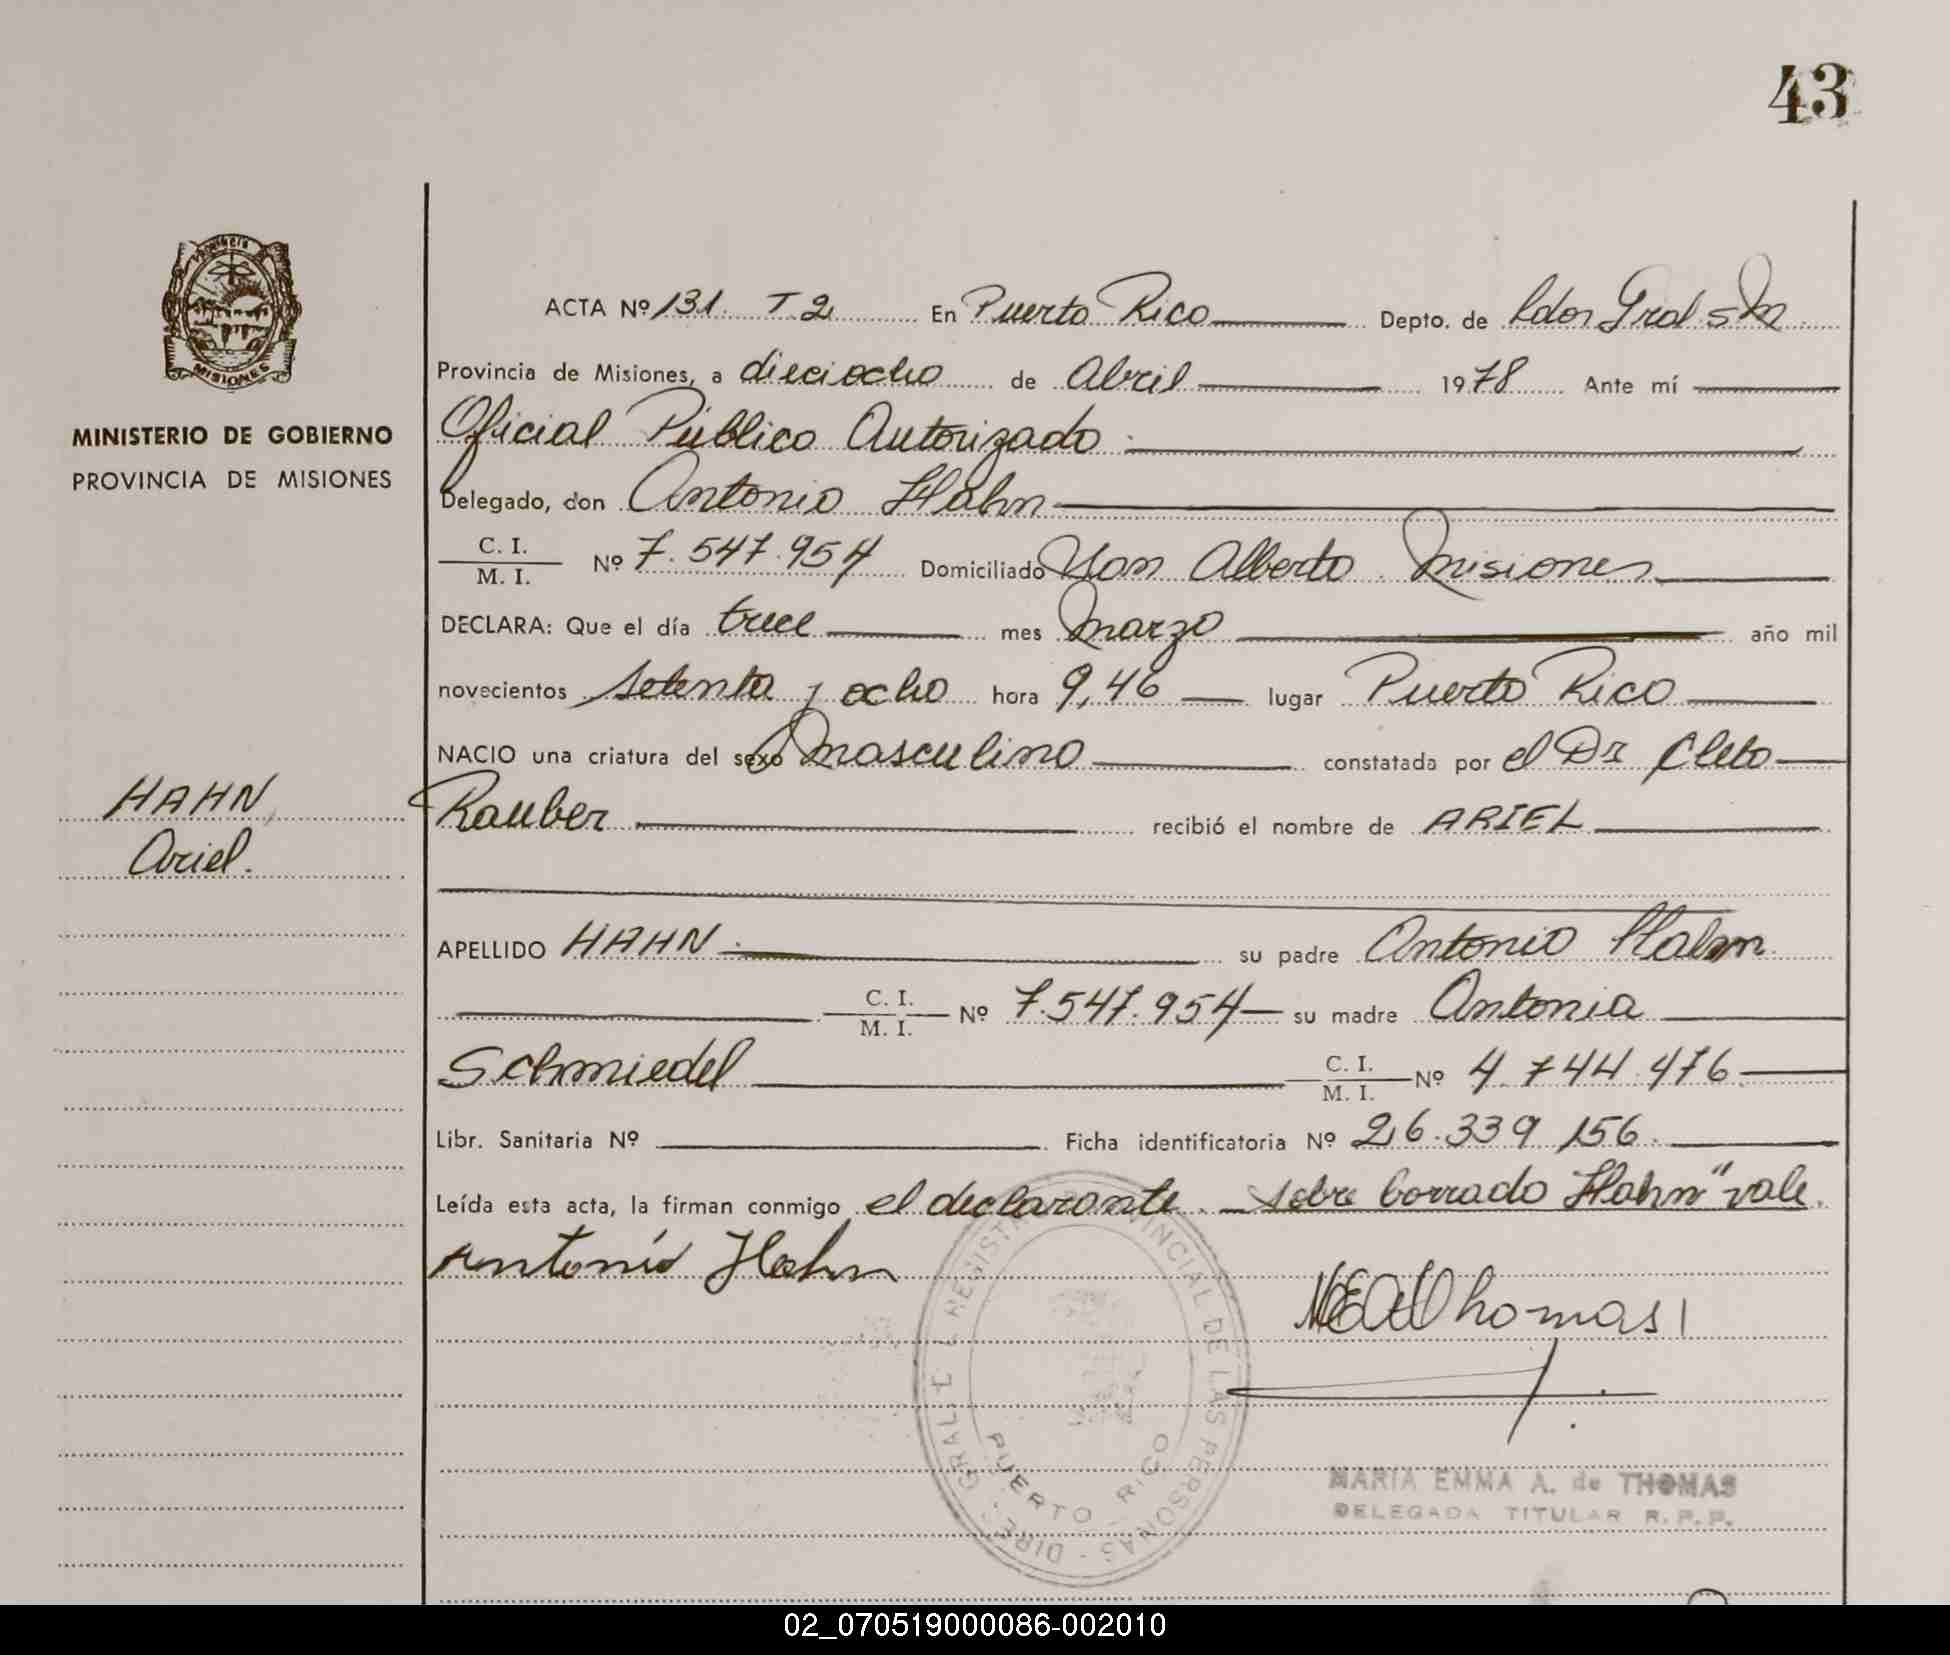 43
Provincia
MISIONES
MINISTERIO DE GOBIERNO
PROVINCIA DE MISIONES
HAHN
Ariel.
ACTA Nº 131. T 2 En Puerto Rico Depto. de Ldor Gral S M
Provincia de Misiones, a dieciocho de Abril 1978 Ante mí
Oficial Público Autorizado
Delegado, don Antonio Hahn
C. I.
M. I. Nº 7.547.954 Domiciliado San Alberto. Misiones
DECLARA: Que el día trece mes Marzo año mil
novecientos setenta y ocho hora 9,46 lugar Puerto Rico
NACIO una criatura del sexo masculino constatada por el Dr Cleto
Rauber recibió el nombre de ARIEL
APELLIDO HAHN su padre Antonio Hahn
C. I.
M. I. Nº 7.547.954 su madre Antonia
Schmiedel C. I.
M. I. Nº 4.744.476
Libr. Sanitaria Nº Ficha identificatoria Nº 26.339.156.
Leída esta acta, la firman conmigo el declarante. sobre borrado Hahn" vale.
Antonio Hahn
MEAThomas
DIREC. GRAL. E REGISTRO PROVINCIAL DE LAS PERSONAS
PUERTO - RICO
MARIA EMMA A. de THOMAS
DELEGADA TITULAR R. P. P.
02_070519000086-002010